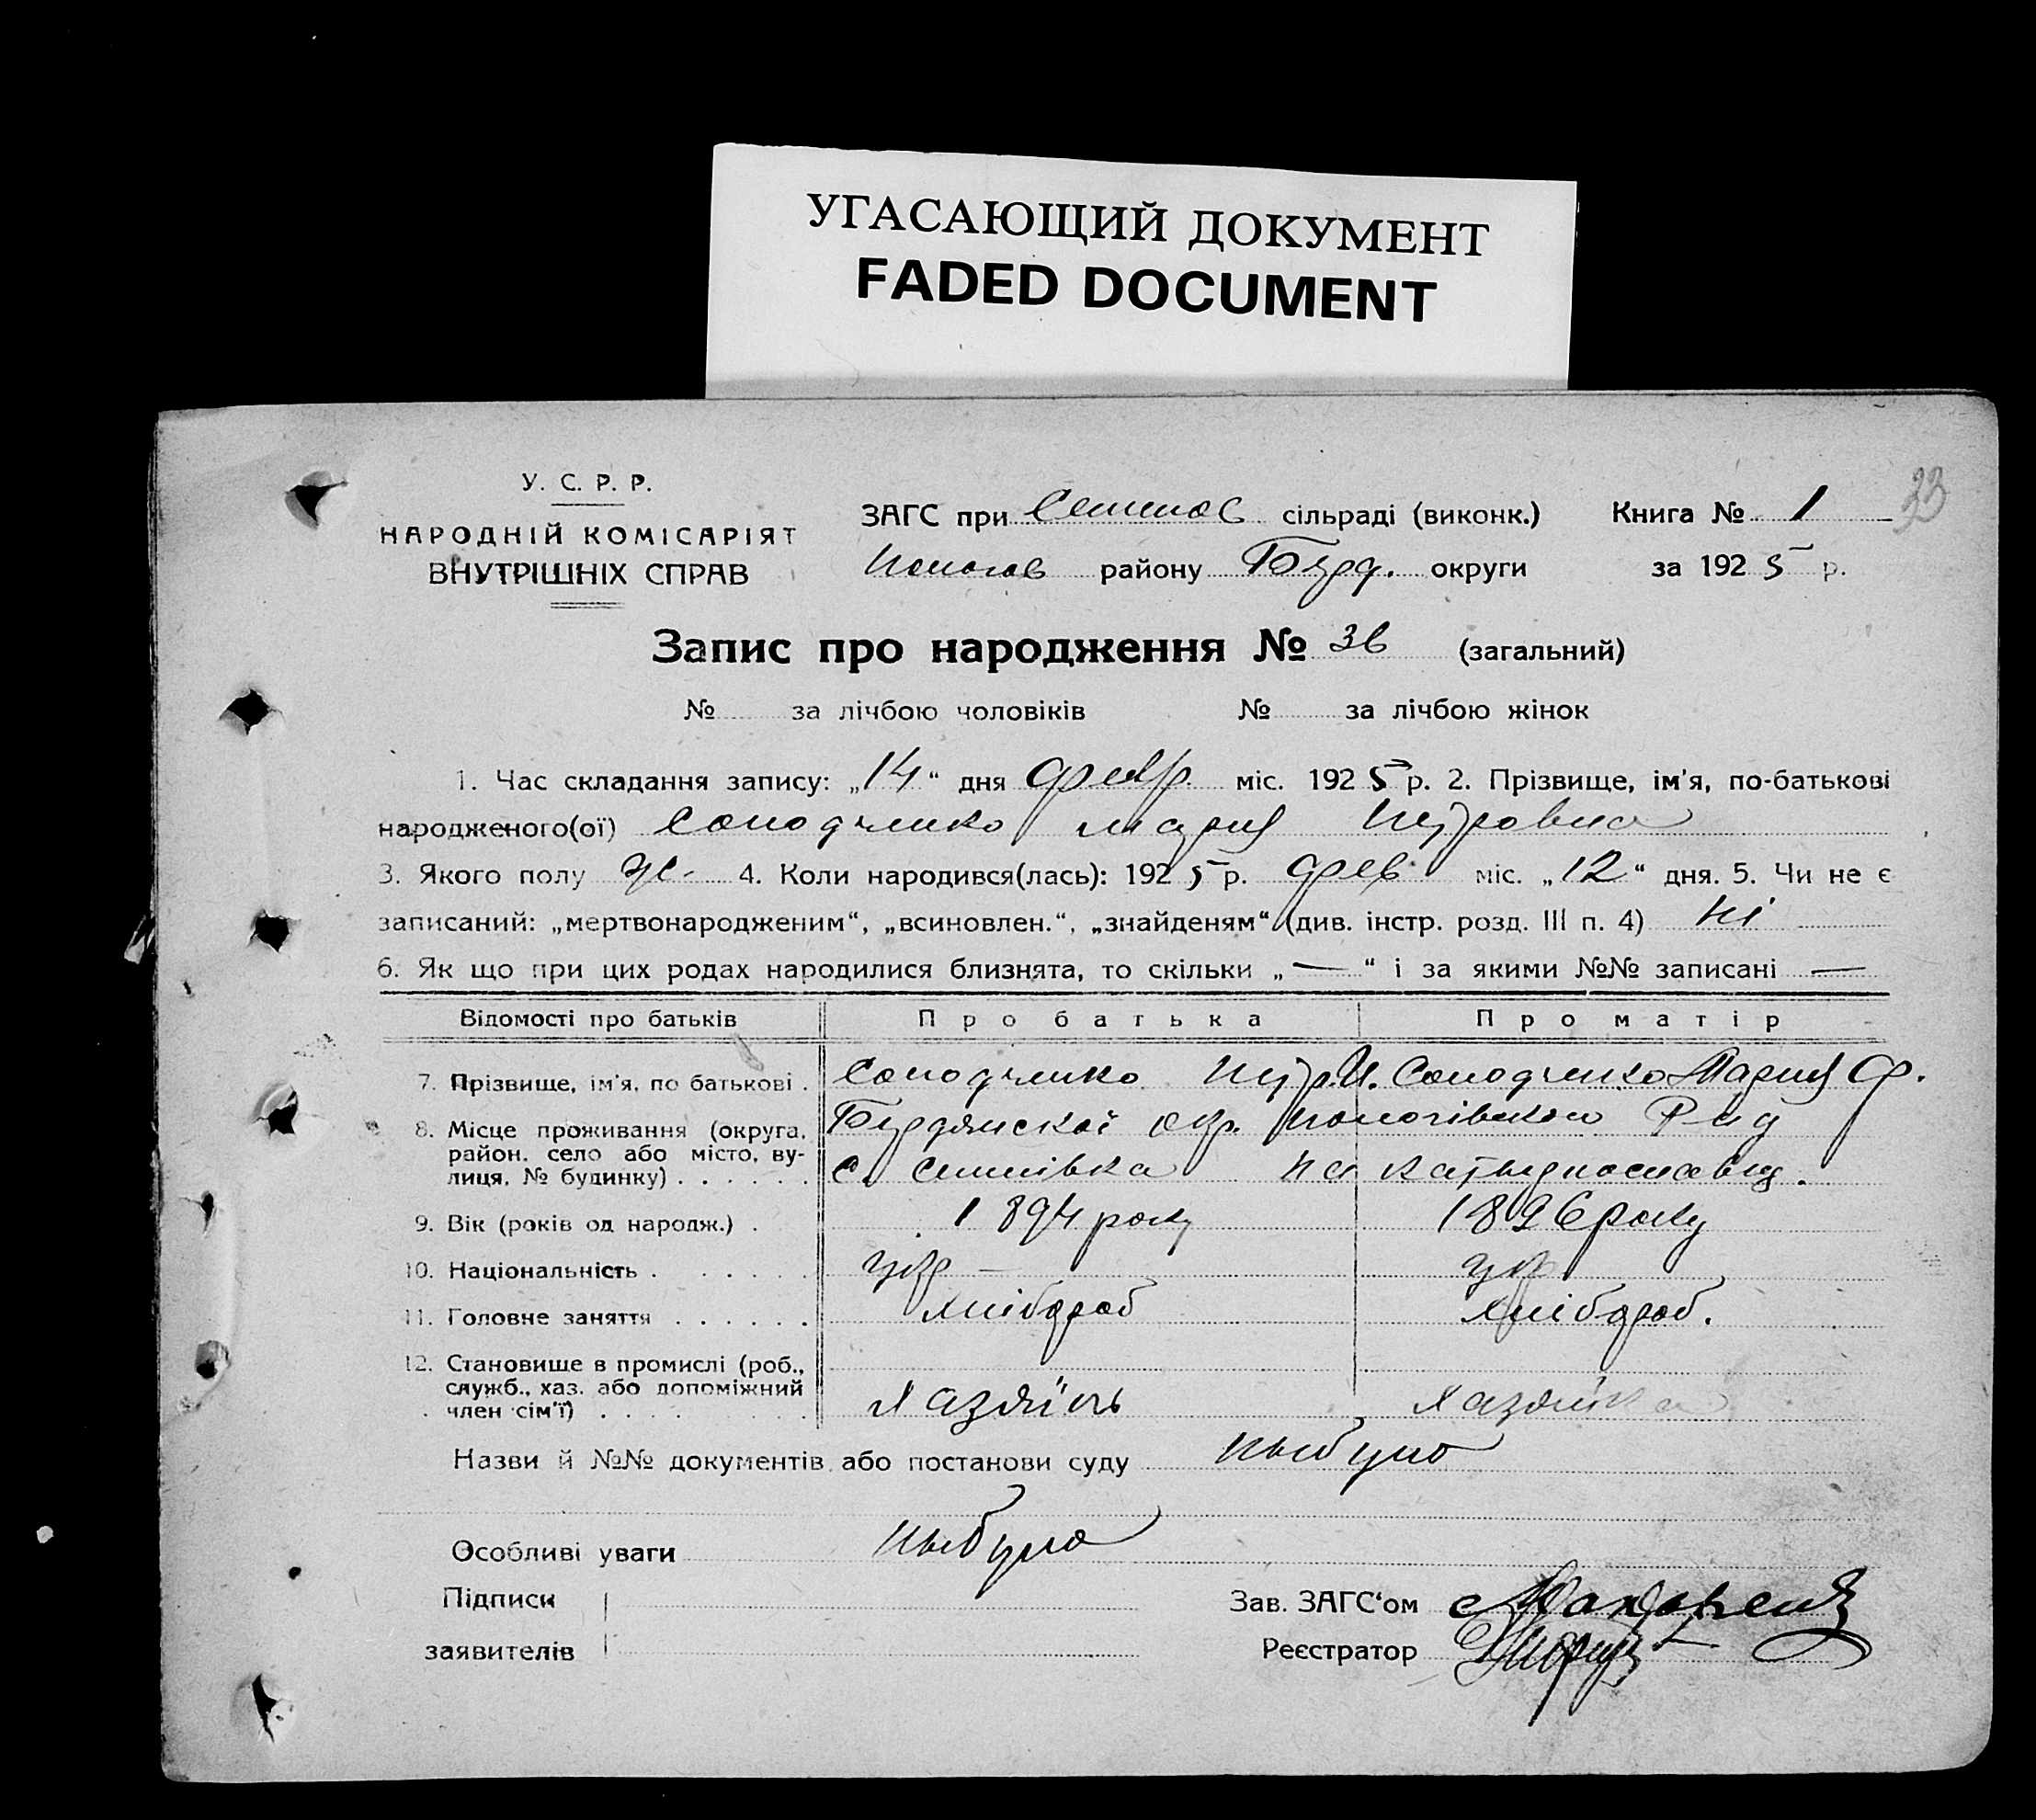 УГАСАЮЩИЙ ДОКУМЕНТ
FADED DOCUMENT
33
У. С. Р. Р.
НАРОДНІЙ КОМІСАРІЯТ
ВНУТРІШНІХ СПРАВ
ЗАГС при Семенов сільраді (виконк.) Книга № 1
Пологов району Бірд. округи за 1925 р.
Запис про народження № 36 (загальний)
№ за лічбою чоловіків № за лічбою жінок
1. Час складання запису: „14“ дня февр. міс. 1925 р. 2. Прізвище, ім'я, по-батькові
народженого(ої) Солодченко Мария Петровна
3. Якого полу ж. 4. Коли народився(лась): 1925 р. фев міс. „12“ дня. 5. Чи не є
записаний: „мертвонародженим“, „всиновлен.“, „знайденям“ (див. інстр. розд. III п. 4) Ні
6. Як що при цих родах народилися близнята, то скільки „—“ і за якими №№ записані —
Відомості про батьків Про батька Про матір
7. Прізвище, ім'я, по батькові . Солодченко Петр. И. Солодченко Мария Ф.
8. Місце проживання (округа, район, село або місто, вулиця, № будинку) . . . . . . Бердянскої окр. Пологівского Рид
с. Семенівка
9. Вік (років од народж.) . 1894 року 1896 року
10. Національність . . . . . укр — укр
11. Головне заняття . . . . . . хлібороб хлібороб.
12. Становище в промислі (роб., служб., хаз. або допоміжний член сім'ї) . . . . Хазяїнь Хазяйка
Назви й №№ документів або постанови суду Ньебуло
Особливі уваги Ньебуло
Підписи
заявителів
Зав. ЗАГС'ом
Реєстратор